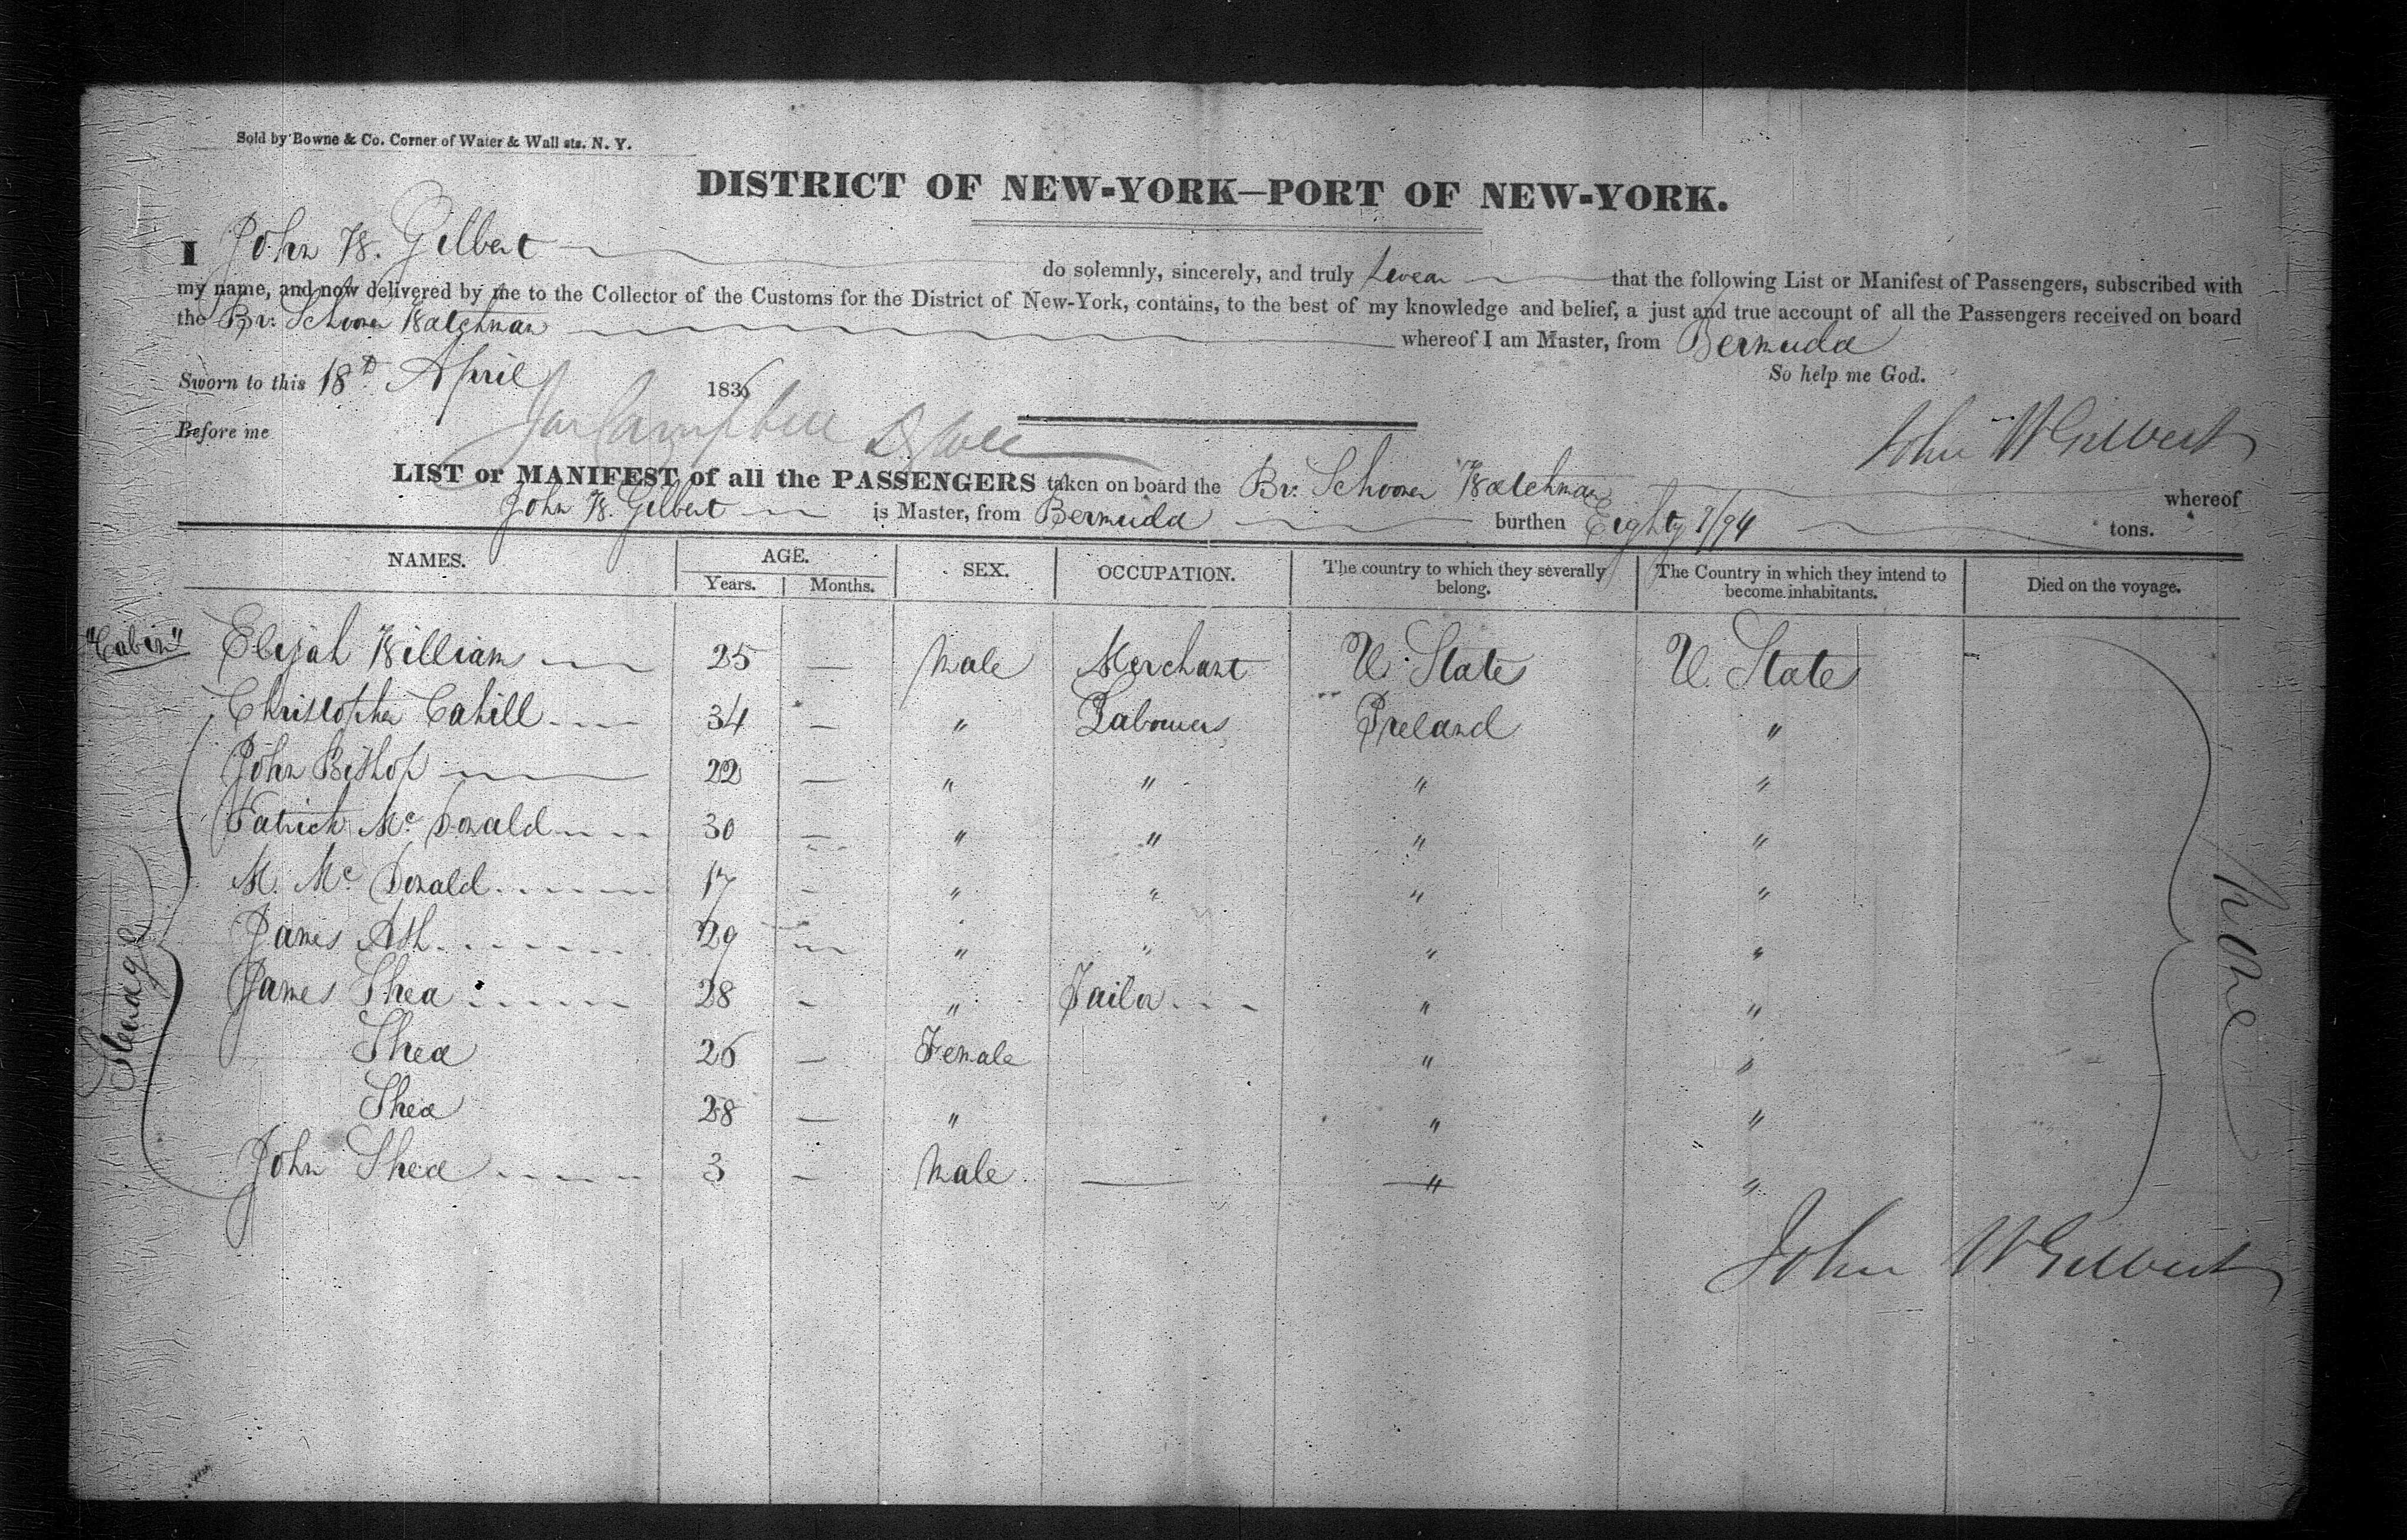 Sold by Bowne & Co. Corner of Water & Wall sts. N. Y.
DISTRICT OF NEW-YORK—PORT OF NEW-YORK.
I John W. Gilbert do solemnly, sincerely, and truly swear that the following List or Manifest of Passengers, subscribed with
my name, and now delivered by me to the Collector of the Customs for the District of New-York, contains, to the best of my knowledge and belief, a just and true account of all the Passengers received on board
the Br. Schooner Watchman whereof I am Master, from Bermuda
So help me God.
Sworn to this 18th April 1836
John W Gilbert
Before me Jas Campbell
LIST or MANIFEST of all the PASSENGERS taken on board the Br. Schooner Watchman whereof
John W. Gilbert is Master, from Bermuda burthen Eighty tons.
NAMES. AGE. Years. Months. SEX. OCCUPATION. The country to which they severally belong. The Country in which they intend to become inhabitants. Died on the voyage.
"Cabin" Elijah William 25 — Male Merchant U. State U. State
Christopher Cahill 34 — " Labourers Ireland "
John Bishop 22 — " " " "
Patrick Mc Donald 30 — " " " "
M. Mc Donald 17 — " " " "
James Ash 29 — " " " "
James Shea 28 — " Tailor " "
Shea 26 — Female " "
Shea 28 — " " "
John Shea 3 — Male — " "
Steerage
None
John W Gilbert